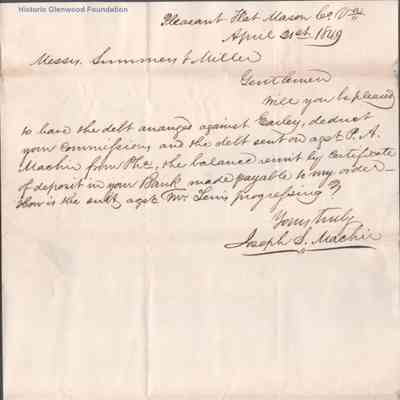 Historic Glenwood Foundation
Pleasant Flat Mason Co. Va.
April 21st 1849
Messrs. Summers & Miller
Gentlemen
Will you be pleased
to have the debt arranged against Earley, deduct
your commissions, and the debt sent on agst P. A.
Machir from the, the balance remit by certificate
of deposit in your Bank made payable to my order
How is the suit agst Mr. progressing?
Yours truly
Joseph S. Machir